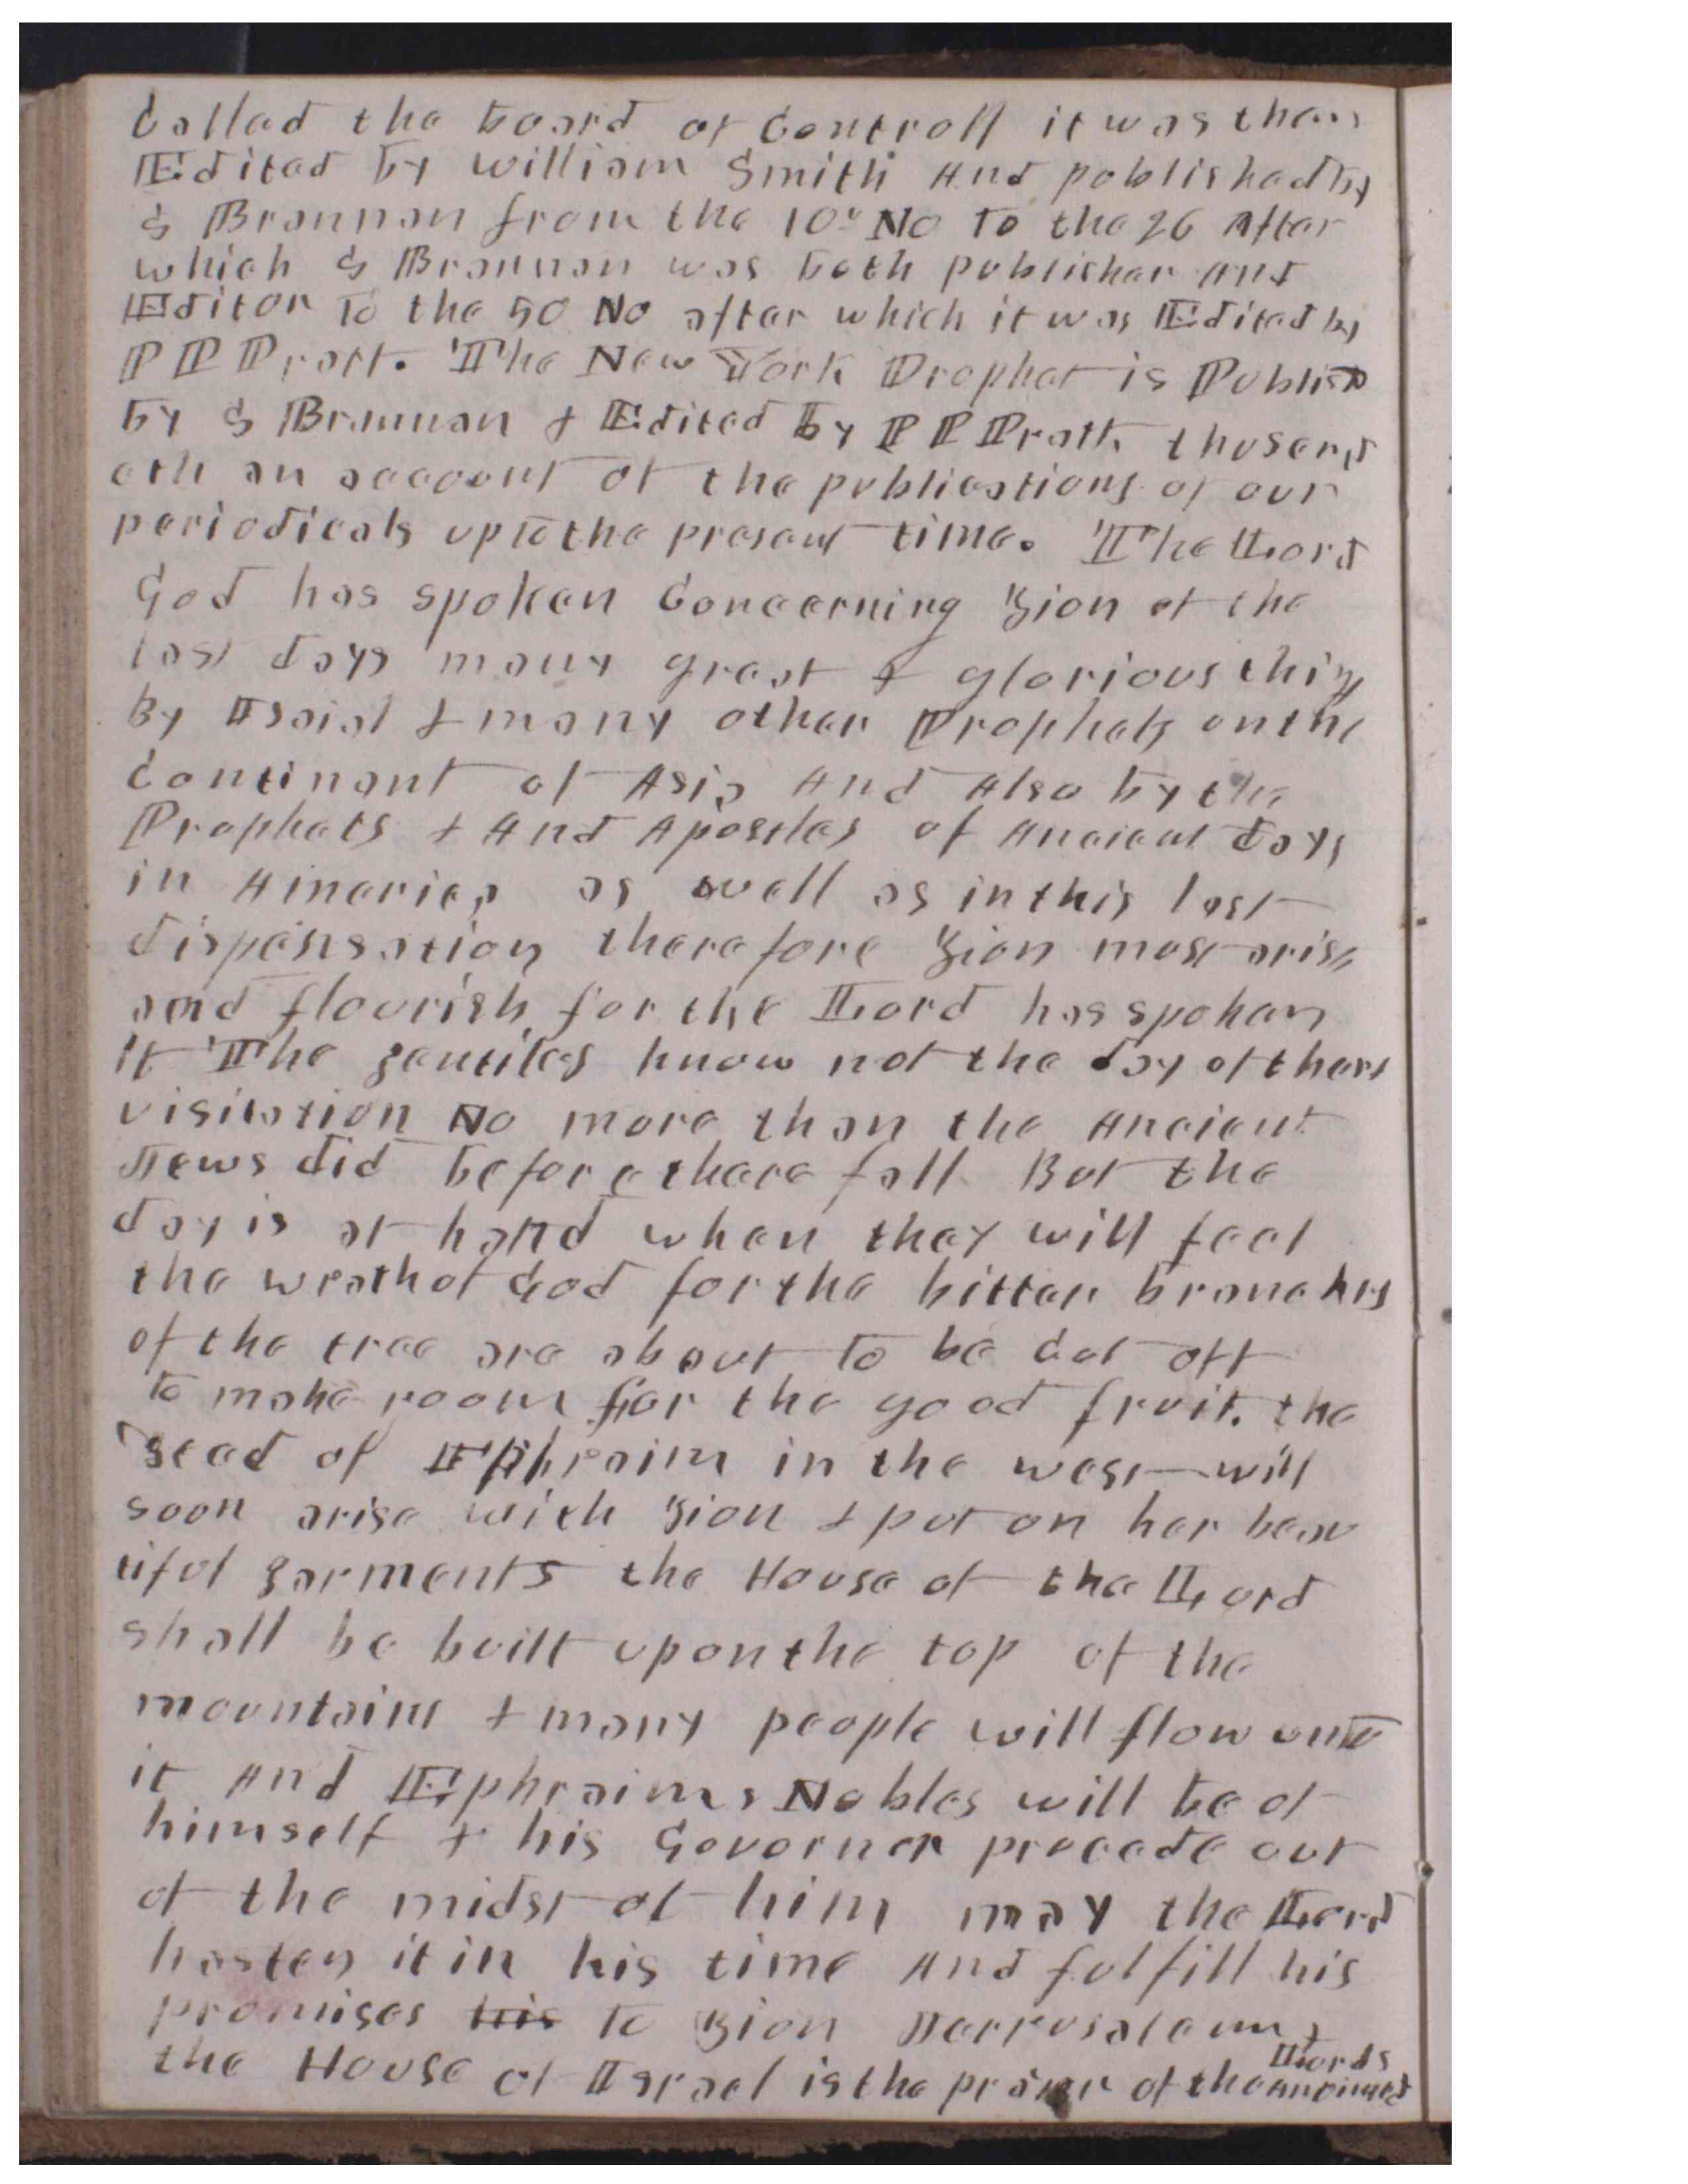 Called the board of Controll it was then
Edited by William Smith And published by
S Brannan from the 10th No To the 26 After
which S Brannan was both publisher And
Editor To the 50 No after which it was Edited by
P P Pratt. The New York Prophet is Publish
by S Brannan & Edited by P P Pratt thus end
eth an account of the publications of our
periodicals up to the present time. The Lord
God has spoken Concerning Zion of the
last days many great & glorious things
By Isaiah & many other Prophets on the
Continent of Asia And Also by the
Prophets & And Apostles of Ancient days
in America as well as in this last
dispensation therefore Zion must arise
and flourish for the Lord has spoken
it The gentiles know not the day of there
visitation No more than the Ancient
Jews did before there fall But the
day is at hand when they will feel
the wrath of God for the bitter branches
of the tree are about to be Cut off
to make room for the good fruit. the
seed of Ephraim in the west will
soon arise with Zion & put on her beau
tiful garments the House of the Lord
shall be built upon the top of the
mountains & many people will flow unto
it And Ephraims Nobles will be of
himself & his Governor procede out
of the midst of him may the Lord
hasten it in his time And fulfill his
promises his to Zion Jerrusalem &
the House of Israel is the prayer of the Lords anointed